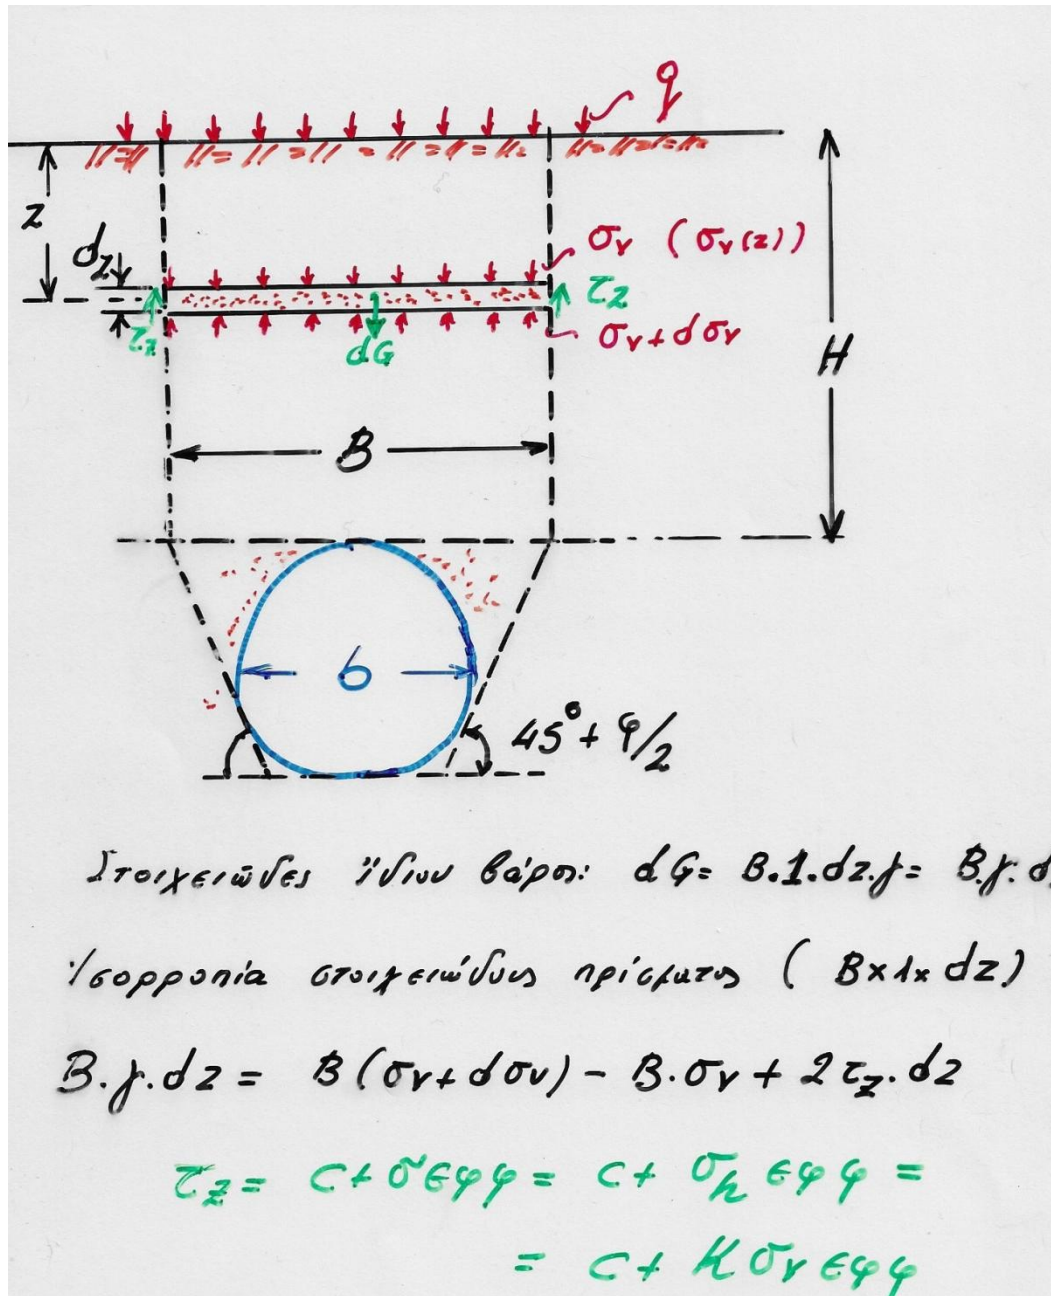 q
z
dz
σv (σv(z))
τz
τz
dG
σv+dσv
H
B
b
45°+φ/2
Στοιχειῶδες ἴδιον βάρος: dG= B.1.dz.γ= B.γ.d
Ἰσορροπία στοιχειώδους πρίσματος ( B×1×dz)
B.γ.dz = B(σv+dσv) - B.σv + 2τz.dz
τz= c+σεφφ= c+ σh εφφ =
= c+ Kσv εφφ